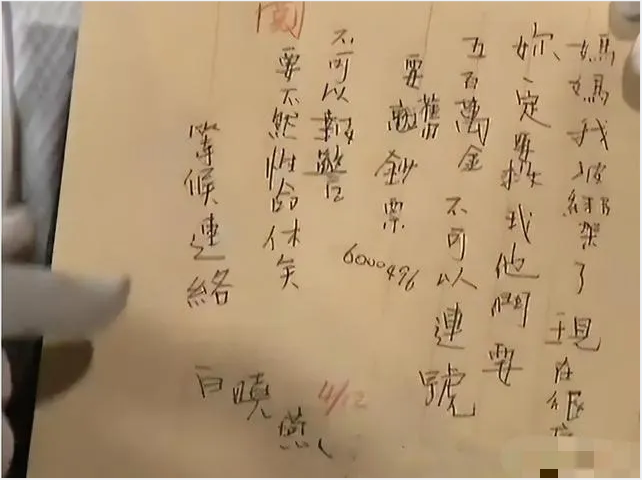 媽媽我被綁架了現在很痛
妳一定要救我他們要
五百萬美金不可以連號
要舊鈔票
6000496
不可以報警
要不然性命休矣
等候連絡
白曉燕
4/12